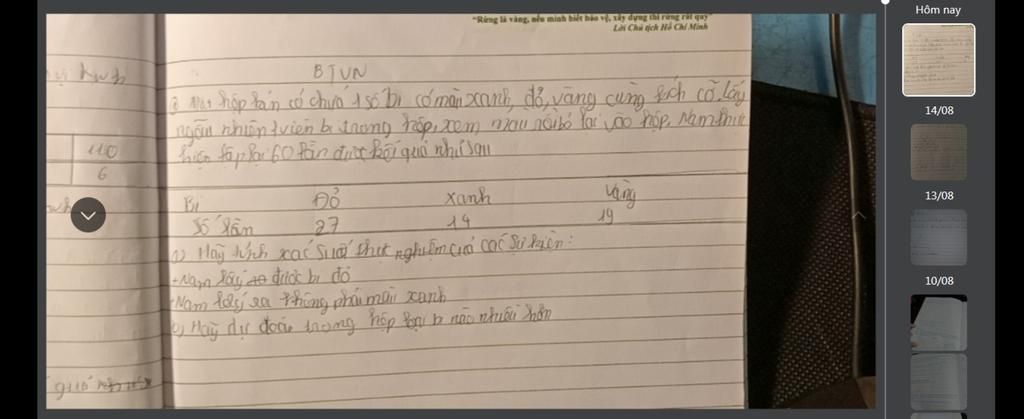 Hôm nay
"Rừng là vàng, nếu mình biết bảo vệ, xây dựng thì rừng rất quý"
Lời Chủ tịch Hồ Chí Minh
BTVN
hộp kín có chứa 1 số bi có màu xanh, đỏ, vàng cùng kích cỡ. lấy
ngẫu nhiên 1 viên bi trong hộp, xem màu rồi bỏ lại vào hộp. Nam thực
hiện lặp lại 60 lần được kết quả như sau
Bi Đỏ xanh Vàng
Số lần 27 14 19
a) Hãy tính xác suất thực nghiệm của các sự kiện:
+Nam lấy được bi đỏ
+Nam lấy ra không phải màu xanh
Hãy dự đoán trong hộp loại bi nào nhiều hơn
110
6
14/08
13/08
10/08